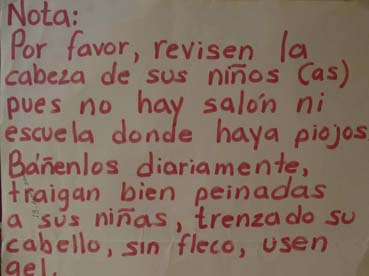 Nota:
Por favor, revisen la
cabeza de sus niños (as)
pues no hay salón ni
escuela donde haya piojos
Báñenlos diariamente,
traigan bien peinadas
a sus niñas, trenzado su
cabello, sin fleco, usen
gel.